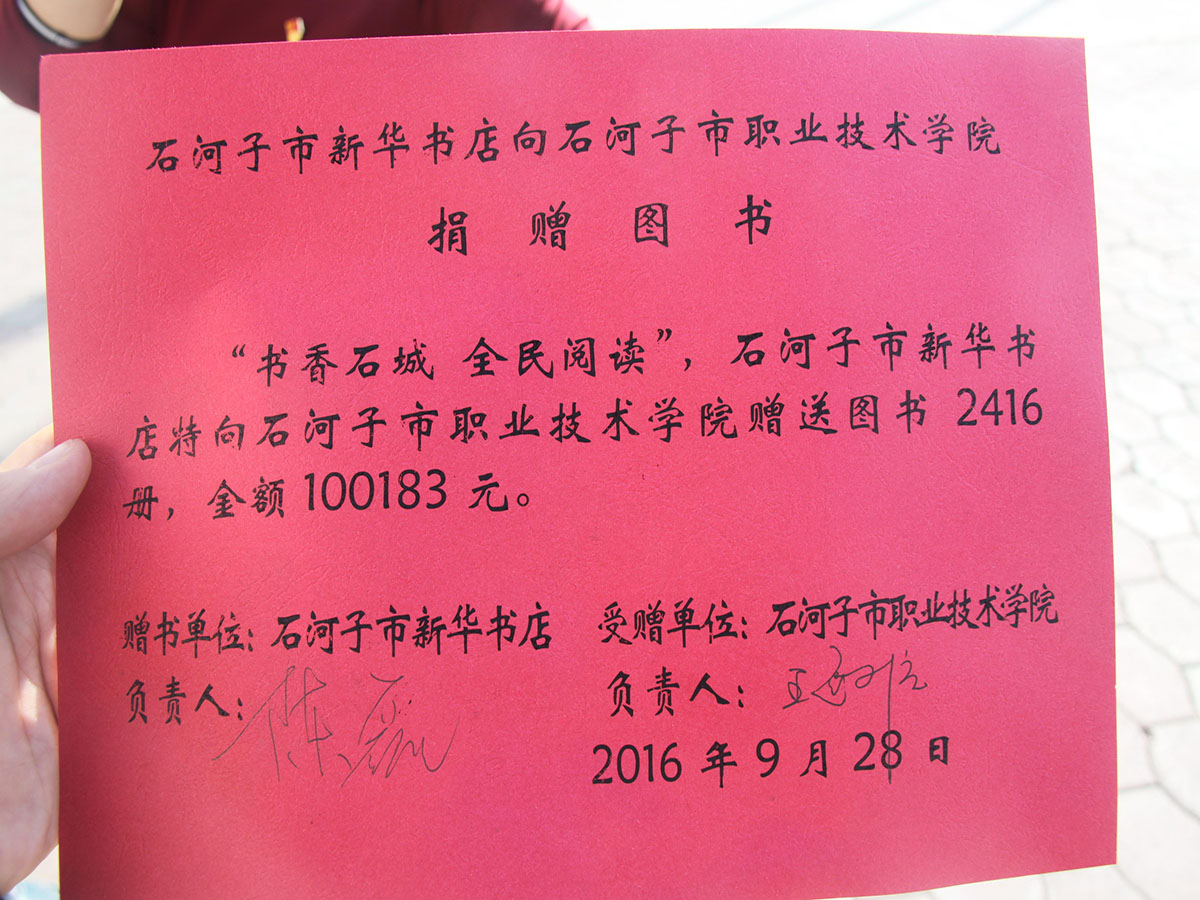 石河子市新华书店向石河子市职业技术学院
捐赠图书
“书香石城 全民阅读”，石河子市新华书
店特向石河子市职业技术学院赠送图书 2416
册，金额 100183 元。
赠书单位：石河子市新华书店 受赠单位：石河子市职业技术学院
负责人： 负责人：王
2016 年 9 月 28 日